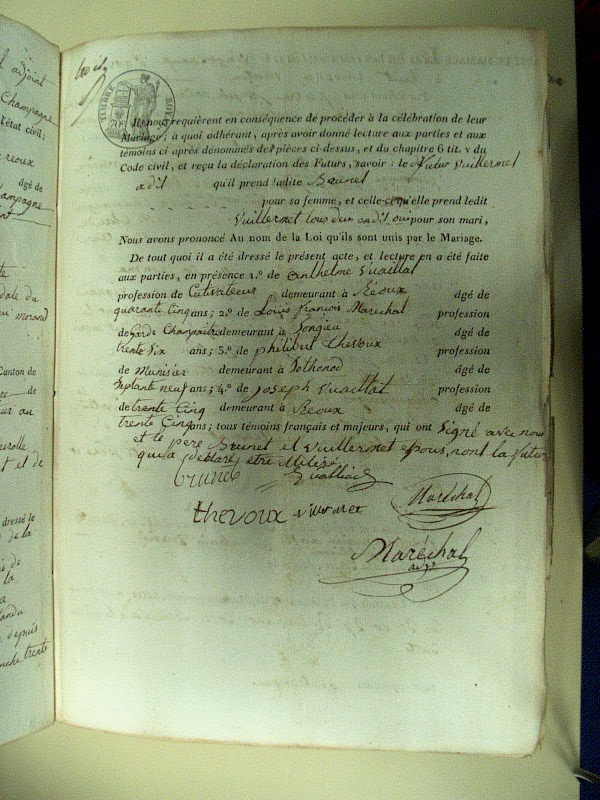 trois
TIMBRE ROYAL
70 c
Ils nous requièrent en conséquence de procéder à la célébration de leur
Mariage; à quoi adhérant, après avoir donné lecture aux parties et aux
témoins ci après dénommés des pièces ci-dessus, et du chapitre 6 tit. v du
Code civil, et reçu la déclaration des Futurs, savoir : le futur Vuillermet
a dit qu'il prend ladite Brunet
pour sa femme, et celle-ci qu'elle prend ledit
Vuillermet tous deux on dit oui pour son mari,
Nous avons prononcé Au nom de la Loi qu'ils sont unis par le Mariage.
De tout quoi il a été dressé le présent acte, et lecture en a été faite
aux parties, en présence 1.° de anthelme Vuaillat
profession de Cutivateeur demeurant à Réoux âgé de
quarante Cinq ans; 2.° de Louis françois Marechal profession
de garde Champaitre demeurant à Jongieu âgé de
trente six ans; 3.° de philibert thevoux profession
de Munisier demeurant à Sothonod âgé de
septante neuf ans; 4.° de joseph Vuaillat profession
de trente Cinq demeurant à Reoux âgé de
trente Cinq ans; tous témoins français et majeurs, qui ont signé avec nous
et le pere Brunet et Vuillermet epous, nont la futur
qui a déclaré etre Illitéré
Brunet Vuaillat
thevoux Vuillermet Maréchal
Maréchal
adjt
l adjoint
Champagne
l'état civil;
réoux
âgé de
champagne
Canton de
de
au
et de
dressé le
de la
de
la
a
depuis
trente